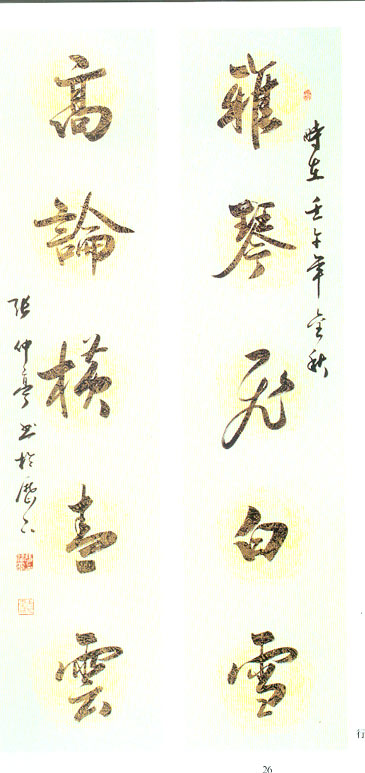 時在壬午年金秋
雅琴飛白雪
高論橫青雲
張仲亭書於歷下
行
26